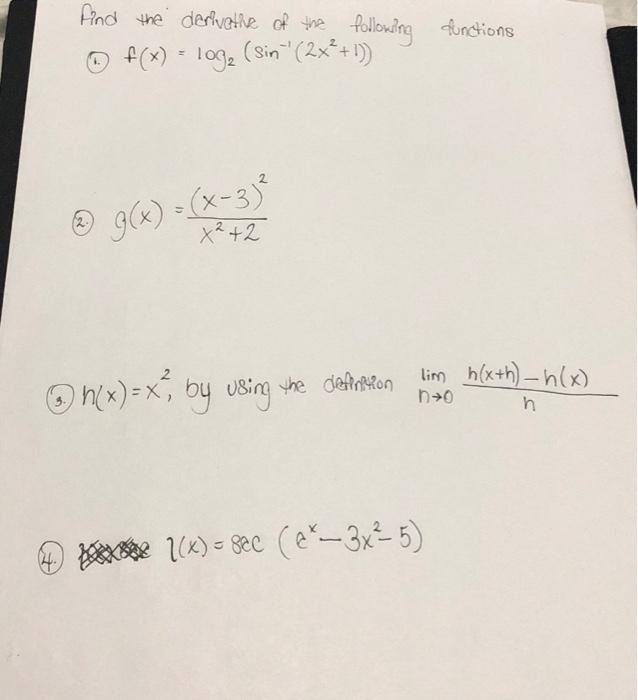 find the derivative of the following functions
1. f(x) = log₂ (sin⁻¹(2x²+1))
2. g(x) = (x-3)² / x²+2
3. h(x) = x², by using the definition lim h→0 h(x+h) – h(x) / h
4. l(x) = sec (eˣ – 3x² – 5)